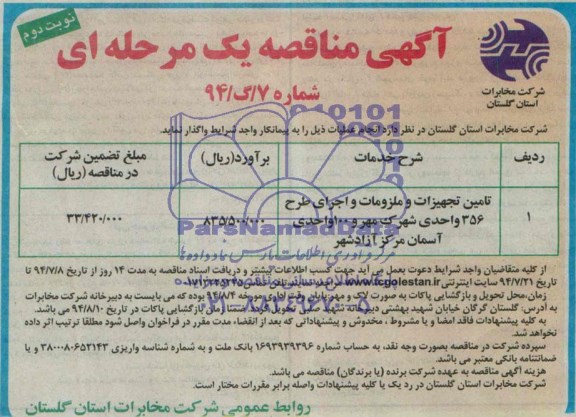 نوبت دوم
آگهی مناقصه یک مرحله ای
شماره ۷/گ/۹۴
شرکت مخابرات
استان گلستان
شرکت مخابرات استان گلستان در نظر دارد انجام عملیات ذیل را به پیمانکار واجد شرایط واگذار نماید.
ردیف شرح خدمات برآورد(ریال) مبلغ تضمین شرکت در مناقصه (ریال)
۱ تامین تجهیزات و ملزومات و اجرای طرح ۳۵۶ واحدی شهرک مهر و ۱۰۰واحدی آسمان مرکز آزادشهر ۸۳۵/۵۰۰/۰۰۰ ۳۳/۴۲۰/۰۰۰
ParsNamadData
مرکز فرآوری اطلاعات پارس نماد داده ها
۰۲۱-۸۸۳۴۹۶۷۰-۵
از کلیه متقاضیان واجد شرایط دعوت بعمل می آید جهت کسب اطلاعات بیشتر و دریافت اسناد مناقصه به مدت ۱۴ روز از تاریخ ۹۴/۷/۸ تا
تاریخ ۹۴/۷/۲۱ سایت اینترنتی www.tcgolestan.ir
زمان،محل تحویل و بازگشایی پاکات به صورت لاک و مهر پایان ۹۴/۸/۴ بوده که می بایست به دبیرخانه شرکت مخابرات
به آدرس: گلستان گرگان خیابان شهید بهشتی دبیرخانه بازگشایی پاکات در تاریخ ۹۴/۸/۱۰ می باشد.
به کلیه پیشنهادات فاقد امضا و یا مشروط ، مخدوش و پیشنهاداتی که بعد از انقضاء مدت مقرر در فراخوان واصل شود مطلقا ترتیب اثر داده
نخواهد شد.
سپرده شرکت در مناقصه بصورت وجه نقد، به حساب شماره ۱۶۹۳۹۳۹۳۹۶ بانک ملت و به شماره شناسه واریزی ۳۸۰۰۰۸۰۶۵۲۱۴۳ و یا
ضمانتنامه بانکی معتبر می باشد.
هزینه آگهی مناقصه به عهده شرکت برنده (یا برندگان) مناقصه می باشد.
شرکت مخابرات استان گلستان در رد یک یا کلیه پیشنهادات واصله برابر مقررات مختار است.
روابط عمومی شرکت مخابرات استان گلستان